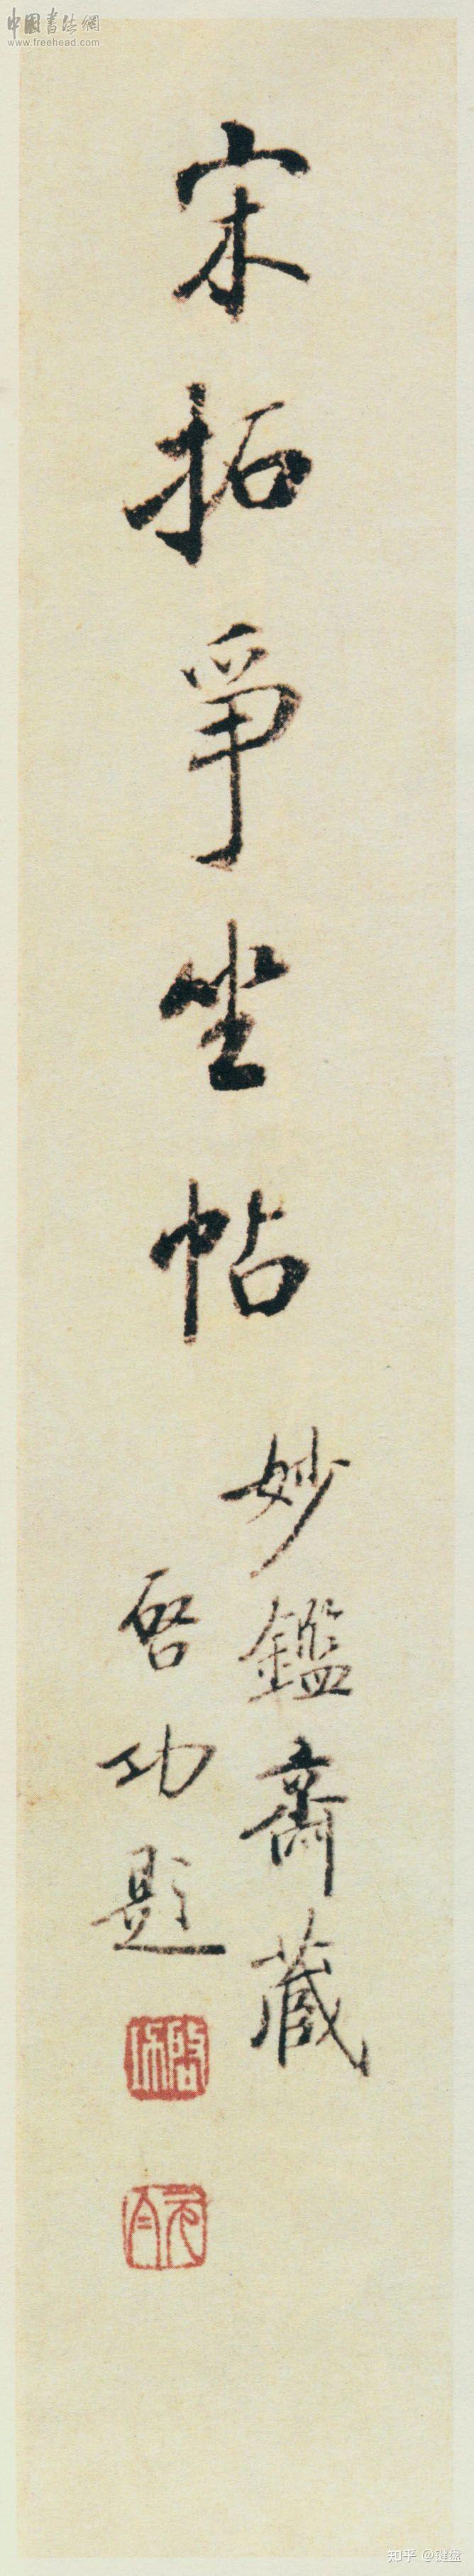 中國書法網
www.freehead.com
宋拓爭坐帖
妙鑑齋藏
啓功題
啓功
元白
知乎 @键盘